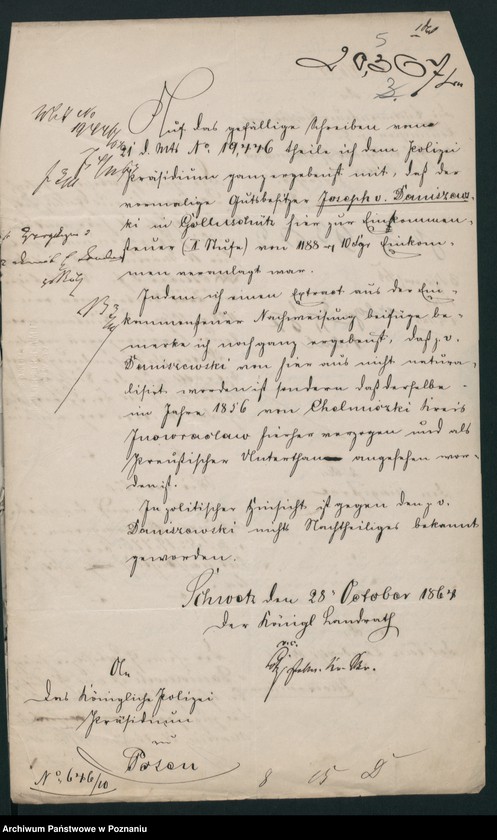 5
20,367
3.
Auf das gefällige Schreiben vom
21 d. Mts No 19,446 theile ich dem Polizei
Präsidium ganz ergebenst mit, daß der
vormalige Gutsbesitzer Joseph v. Daniszews-
ki in hier zur Einkommen-
steuer (II Stufe) von 1188 10 Sgr Einkom-
men veranlagt war.
Indem ich einen Extract aus der Ein-
kommensteuer Nachweisung beifüge be-
merke ich noch ganz ergebenst, daß p. v.
Daniszewski von hier aus nicht natura-
lisirt worden ist sondern daß derselbe
im Jahre 1856 von Chelmiczki Kreis
Inowraclaw hierher verzogen und als
Preußischer Unterthan angesehen wor-
den ist.
In politischer Hinsicht ist gegen den p. v.
Daniszewski nichts Nachtheiliges bekannt
geworden.
den 28 October 1864
Der Königl Landrath
An
das Königliche Polizei
Präsidium
zu
Posen
No. 646/10
8 15 D
Archiwum Państwowe w Poznaniu